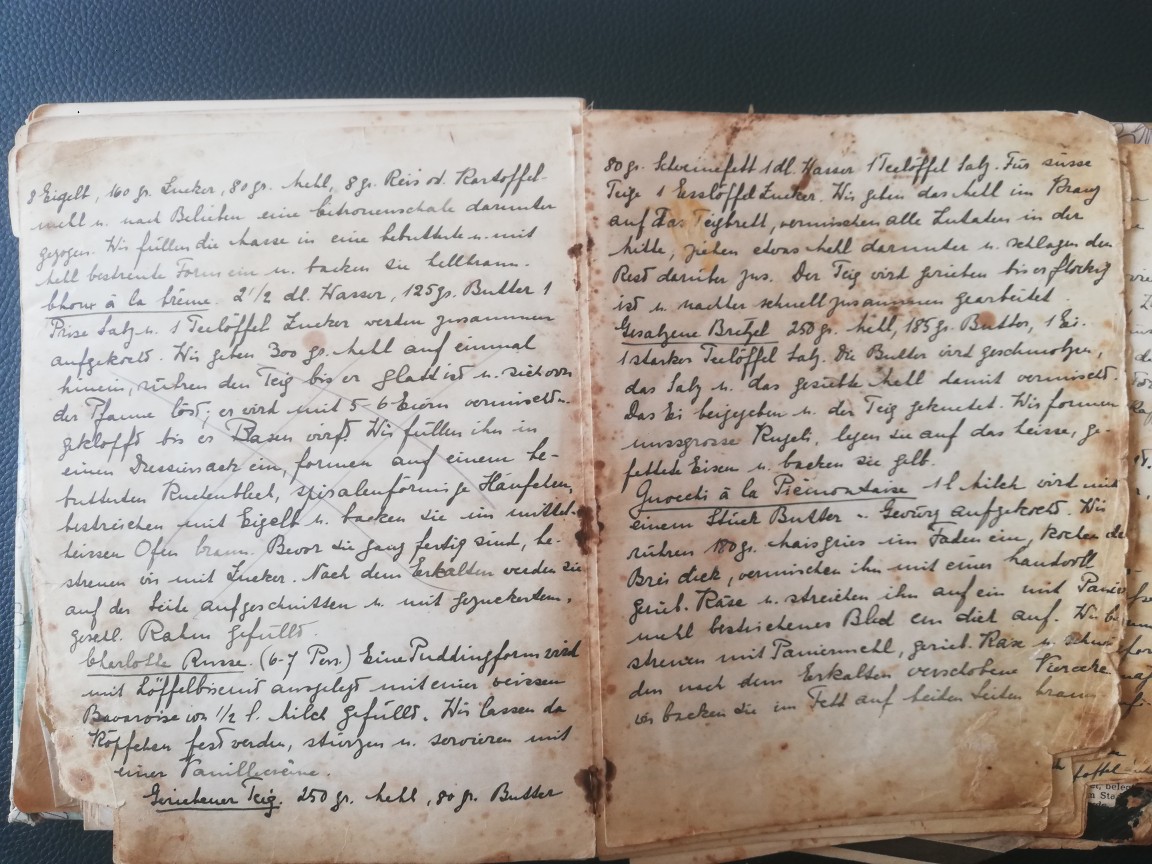 8 Eigelb, 160 gr. Zucker, 80 gr. Mehl, 8 gr. Reis od. Kartoffel-
mehl u. nach Belieben eine Citronenschale darunter
gezogen. Wir füllen die Masse in eine bebutterte u. mit
Mehl bestreute Form ein u. backen sie hellbraun.
Choux à la Crème. 2 1/2 dl. Wasser, 125 gr. Butter 1
Prise Salz u. 1 Teelöffel Zucker werden zusammen
aufgekocht. Wir geben 300 gr. Mehl auf einmal
hinein, rühren den Teig bis er glatt ist u. sich von
der Pfanne löst; er wird mit 5-6 Eiern vermischt u.
geklopft bis er Blasen wirft. Wir füllen ihn in
einen Dressiersack ein, formen auf einem be-
butterten Kuchenblech, spiralenförmige Häufchen,
bestreichen mit Eigelb u. backen sie im mittel-
heissen Ofen braun. Bevor sie ganz fertig sind, be-
streuen wir mit Zucker. Nach dem Erkalten werden sie
auf der Seite aufgeschnitten u. mit gezuckertem,
geschl. Rahm gefüllt.
Charlotte Russe. (6-7 Pers.) Eine Puddingform wird
mit Löffelbiscuit ausgelegt mit einer weissen
Bavaroise von 1/2 l. Milch gefüllt. Wir lassen da
Köpfchen fest werden, stürzen u. servieren mit
einer Vanillecrème.
Geriebener Teig. 250 gr. Mehl, 80 gr. Butter
80 gr. Schweinefett 1 dl. Wasser 1 Teelöffel Salz. Für süsse
Teige 1 Esslöffel Zucker. Wir geben das Mehl im Kranz
auf das Teigbrett, vermischen alle Zutaten in der
Mitte, ziehen etwas Mehl darunter u. schlagen den
Rest darüber zus. Der Teig wird gerieben bis er flockig
ist u. nachher schnell zusammen gearbeitet.
Gesalzene Bretzel 250 gr. Mehl, 185 gr. Butter, 1 Ei.
1 starker Teelöffel Salz. Die Butter wird geschmolzen,
das Salz u. das gesiebte Mehl damit vermischt.
Das Ei beigegeben u. der Teig geknetet. Wir formen
nussgrosse Kugeli, legen sie auf das heisse, ge-
fettete Eisen u. backen sie gelb.
Gnocchi à la Piémontaise 1 l Milch wird mit
einem Stück Butter u. Gewürz aufgekocht. Wir
rühren 180 gr. Maisgries im Faden ein, kochen de
Brei dick, vermischen ihn mit einer handvoll
gerieb. Käse u. streichen ihn auf ein mit Panier
mehl bestrichenes Blech cm dick auf. Wir be
streuen mit Paniermehl, gerieb. Käse u. schnei
den nach dem Erkalten verschobene Vierecke
wir backen sie im Fett auf beiden Seiten braun